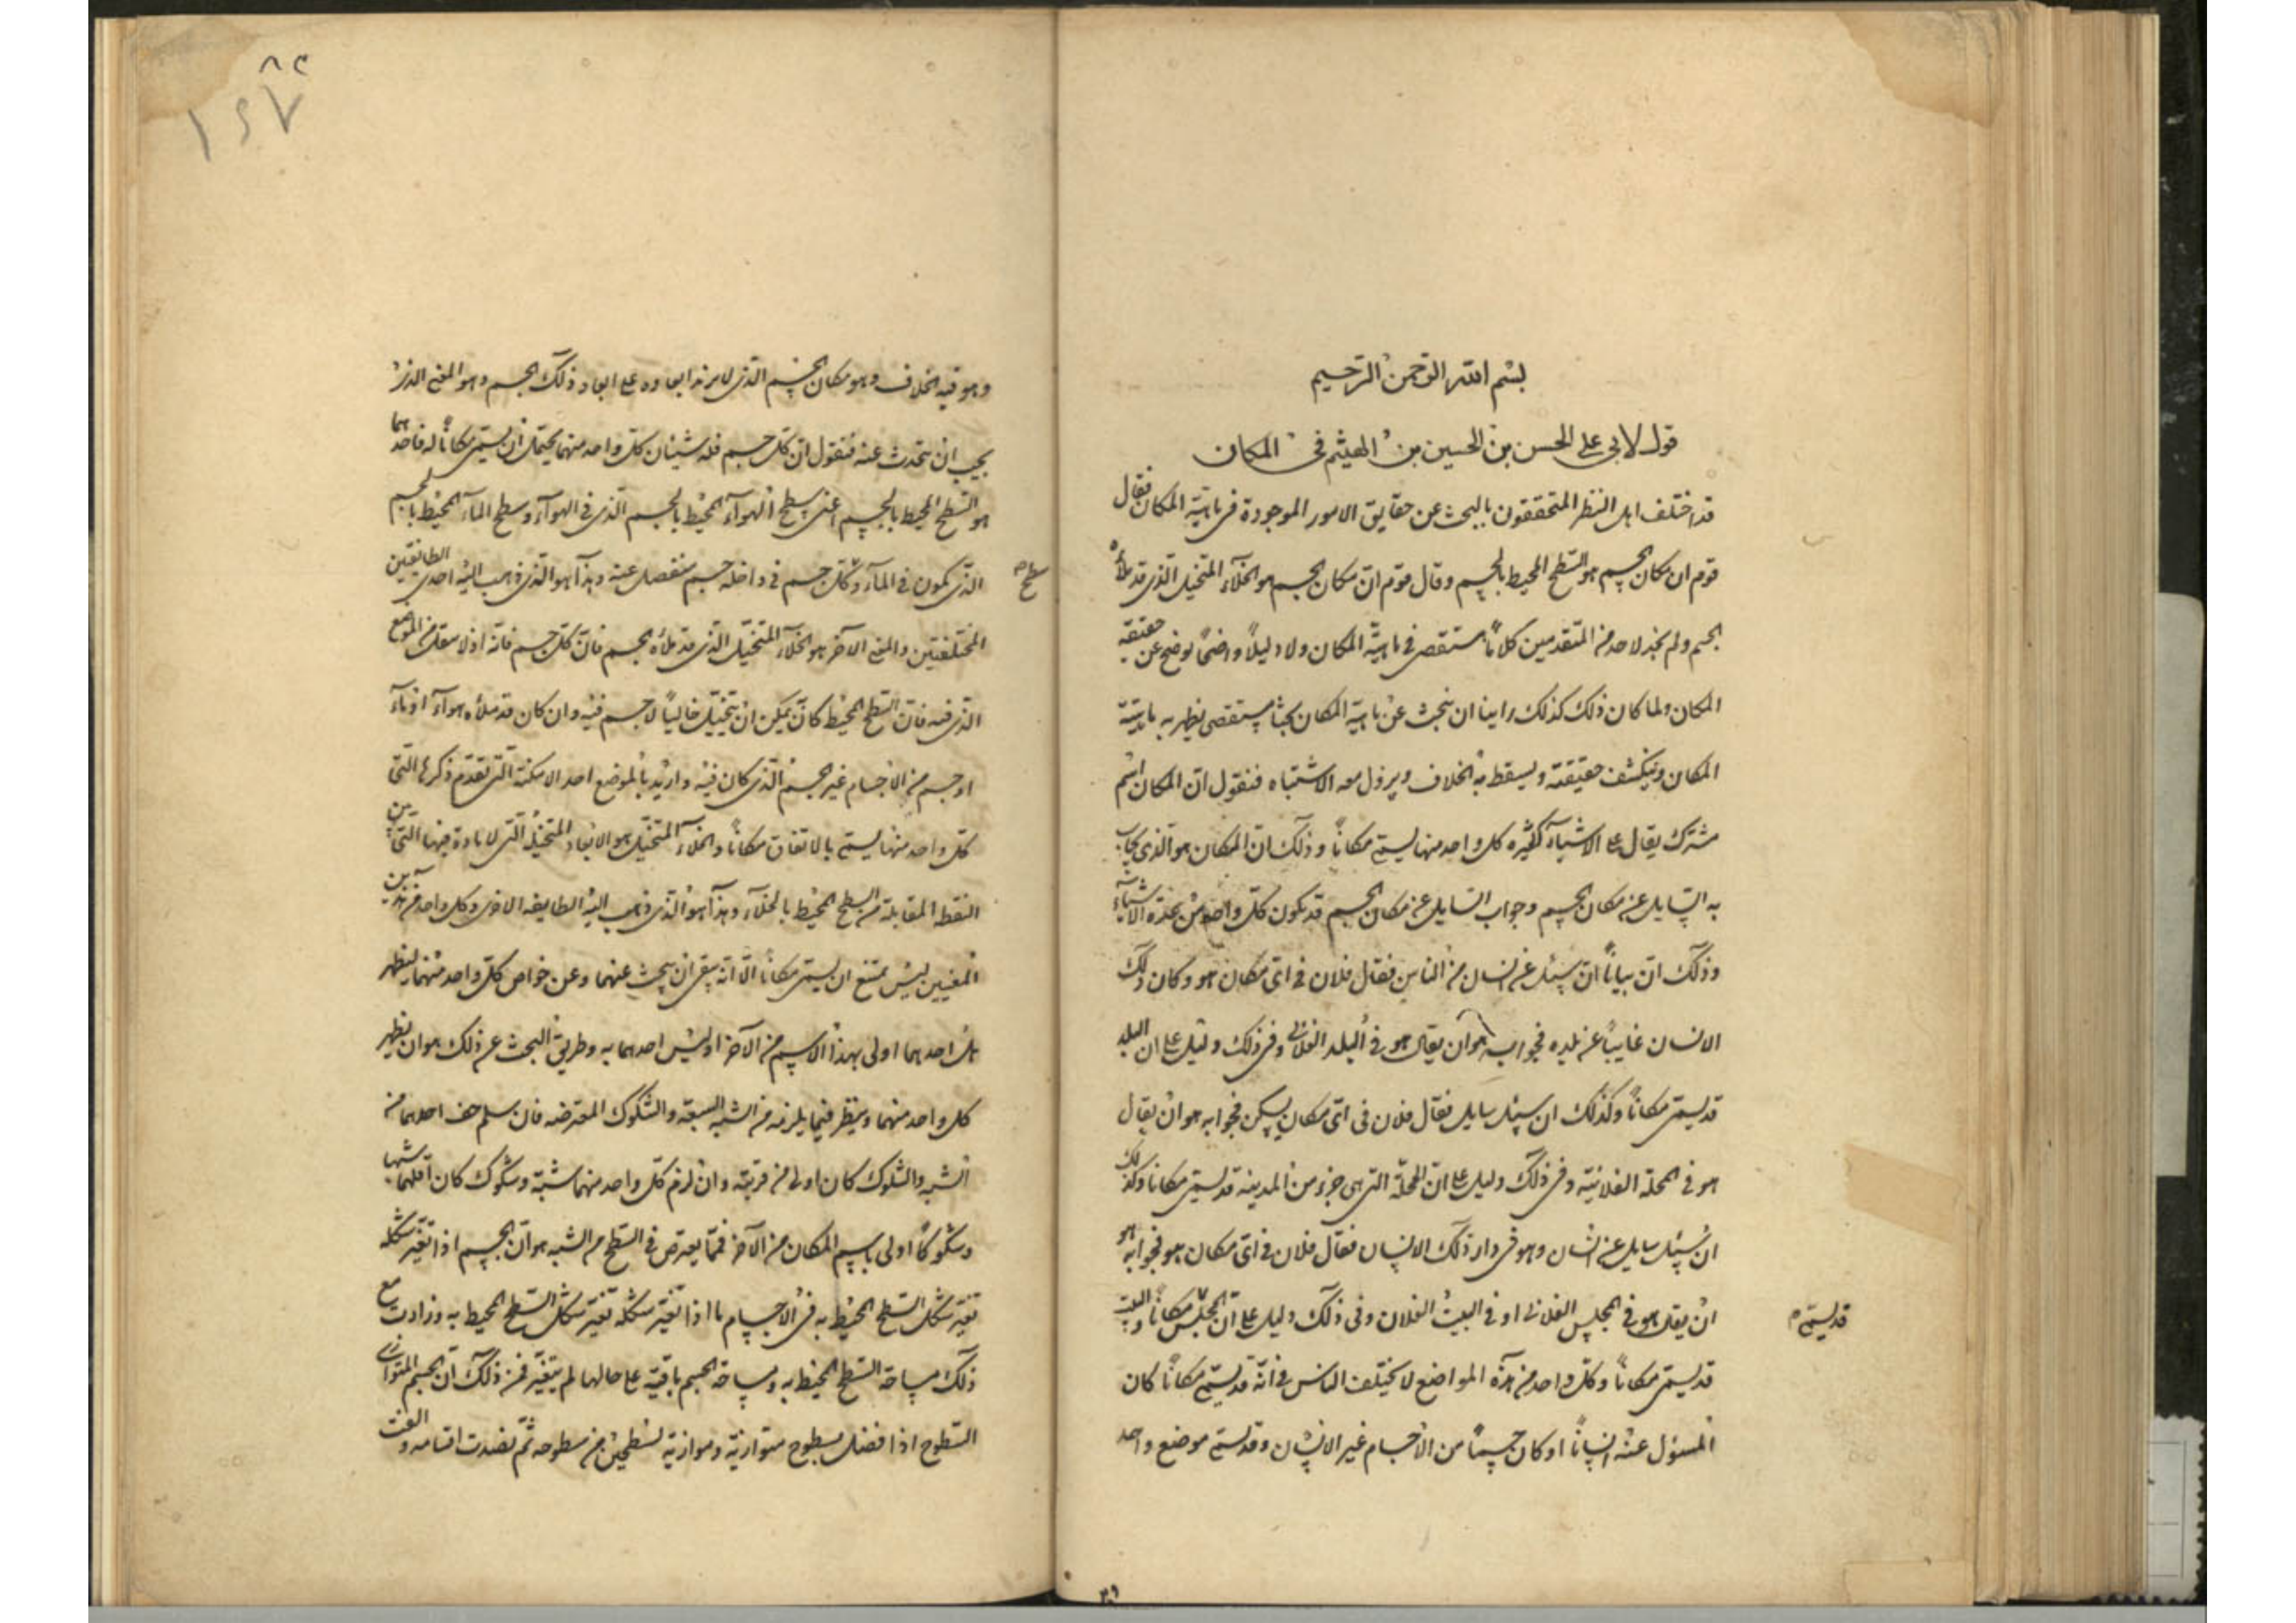 بسم الله الرحمن الرحيم
قول لابي على الحسن بن الحسين بن الهيثم فى المكان
قد اختلف اهل النظر المتحققون بالبحث عن حقايق الامور الموجودة فى ماهية المكان فقال
قوم ان مكان الجسم هو السطح المحيط بالجسم وقال قوم ان مكان الجسم هو الخلآء المتخيل الذى قد ملأه
الجسم ولم نجد لاحد من المتقدمين كلامًا مستقصى فى ماهية المكان ولا دليلاً واضحًا يوضح عن حقيقة
المكان ولما كان ذلك كذلك راينا ان نبحث عن ماهية المكان بحثا مستقصى يظهر به مايية
المكان وينكشف حقيقته ويسقط به الخلاف ويزول معه الاشتباه فنقول ان المكان اسم
مشترك يقال على الاشيآء كثيره كل واحد منها يسمى مكانًا وذلك ان المكان هو الذى يجاب
به السايل عن مكان الجسم وجواب السايل عن مكان الجسم قد يكون كل واحد من هذه الاشيآء
وذلك ان ان سئل عن انسان من الناس فقال فلان فى اى مكان هو وكان ذلك
الانسان غايبًا عن بلده فجوابه هو ان يقال هو فى البلد الفلانى وفى ذلك دليل على ان البلد
قد يسمى مكانًا وكذلك ان سئل سايل فقال فلان فى اى مكان يسكن فجوابه هو ان يقال
هو فى المحلة الفلانية وفى ذلك دليل على ان المحلة التى هى جزء من المدينة قد يسمى مكانا وكذلك
ان سئل سايل عن انسان وهو فى دار ذلك الانسان فقال فلان فى اى مكان هو فجوابه هو
ان يقال هو فى المجلس الفلانى او فى البيت الفلان وفى ذلك دليل على ان المجلس مكانًا والبيت
قد يسمى
قد يسمى مكانًا وكل واحد من هذه المواضع لا يختلف الناس فى انه قد يسمى مكانًا كان
المسئول عنه انسانًا او كان جسمًا من الاجسام غير الانسان وقد يسمى موضع واحد
وهو فيه الخلاف وهو مكان الجسم الذى لا يزيد ابعاده على ابعاد ذلك الجسم وهو المعنى الذى
يجب ان نتحدث عنه فنقول ان كل جسم فله شيئان كل واحد منهما يحتمل ان يسمى مكانًا له فاحدهما
هو السطح المحيط بالجسم اعنى سطح الهوآء المحيط بالجسم الذى فى الهوآء وسطح المآء المحيط بالجسم
الذى يكون فى المآء وكل جسم فى داخله جسم منفصل عنه وهذا هو الذى ذهب اليه احدى الطائفتين
سطح
المختلفتين والمعنى الاخر هو الخلآء المتخيل الذى قد ملأه الجسم فان كل جسم فانه اذا من الموضع
الذى فيه فان السطح المحيط كان يمكن ان يتخيل خاليًا لا جسم فيه وان كان قد ملأه هوآء او مآء
او جسم من الاجسام غير الجسم الذى كان فيه واريد بالموضع احد الامكنة التى تقدم ذكرها التى
كل واحد منها يسمى بالاتفاق مكانًا والخلآء المتخيل هو الابعاد المتخيلة التى لا مادة فيها التى بين
النقط المقابلة من السطح المحيط بالخلآء وهذا هو الذى ذهب اليه الطايفه الاخرى وكل واحد من هذين
المعنيين ليس يمتنع ان يسمى مكانًا الا انه بقى ان يبحث عنهما وعن خواص كل واحد منهما ليظهر
هل احدهما اولى بهذا الاسم من الاخر او ليس احدهما به وطريق البحث عن ذلك هو ان يظهر
كل واحد منهما وينظر فيما يلزمه من الشبه والشكوك المعترضه فان سلم احدهما من
الشبه والشكوك كان اولى من قرينه وان لزم كل واحد منهما شبه وشكوك كان اقلهما شبها
وشكوكًا اولى باسم المكان من الاخر فمما يعترض فى السطح من الشبه هو ان الجسم اذا تغير شكله
تغير شكل السطح المحيط به فمن الاجسام ما اذا تغير شكله تغير شكل السطح المحيط به وزادت مع
ذلك مساحة السطح المحيط به ومساحة الجسم باقية على حالها لم يتغير فمن ذلك ان الجسم المتوازى
السطوح اذا فصل بسطوح متوازية وموازية لسطحين من سطوحه ثم نضدت اقسامه و